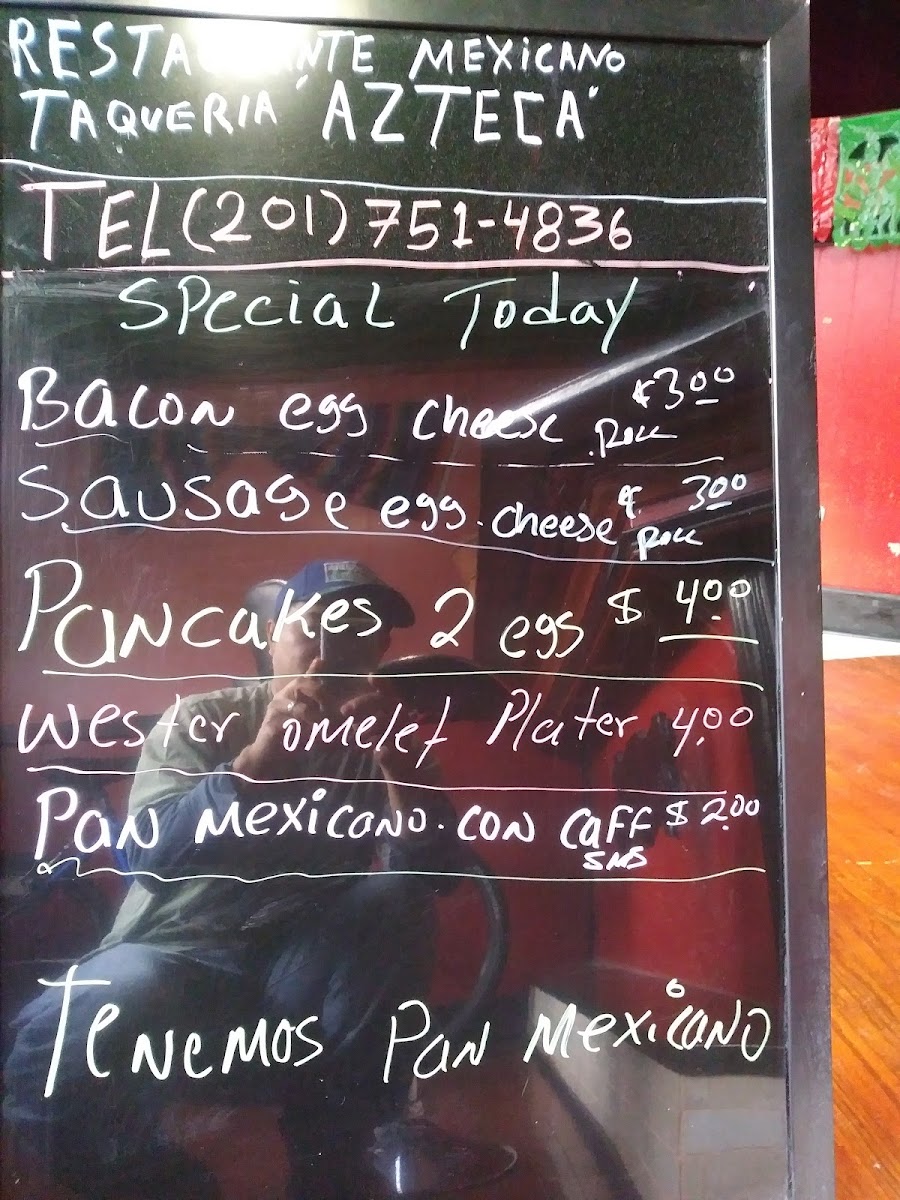 RESTAURANTE MEXICANO
TAQUERIA "AZTECA"
TEL (201) 751-4836
SPecial Today
Bacon egg cheese Roll $3.00
Sausage egg. cheese Roll $ 3.00
Pancakes 2 eggs $ 4.00
wester omelet Plater 4.00
Pan Mexicano. con caff $ 2.00
Tenemos Pan Mexicano